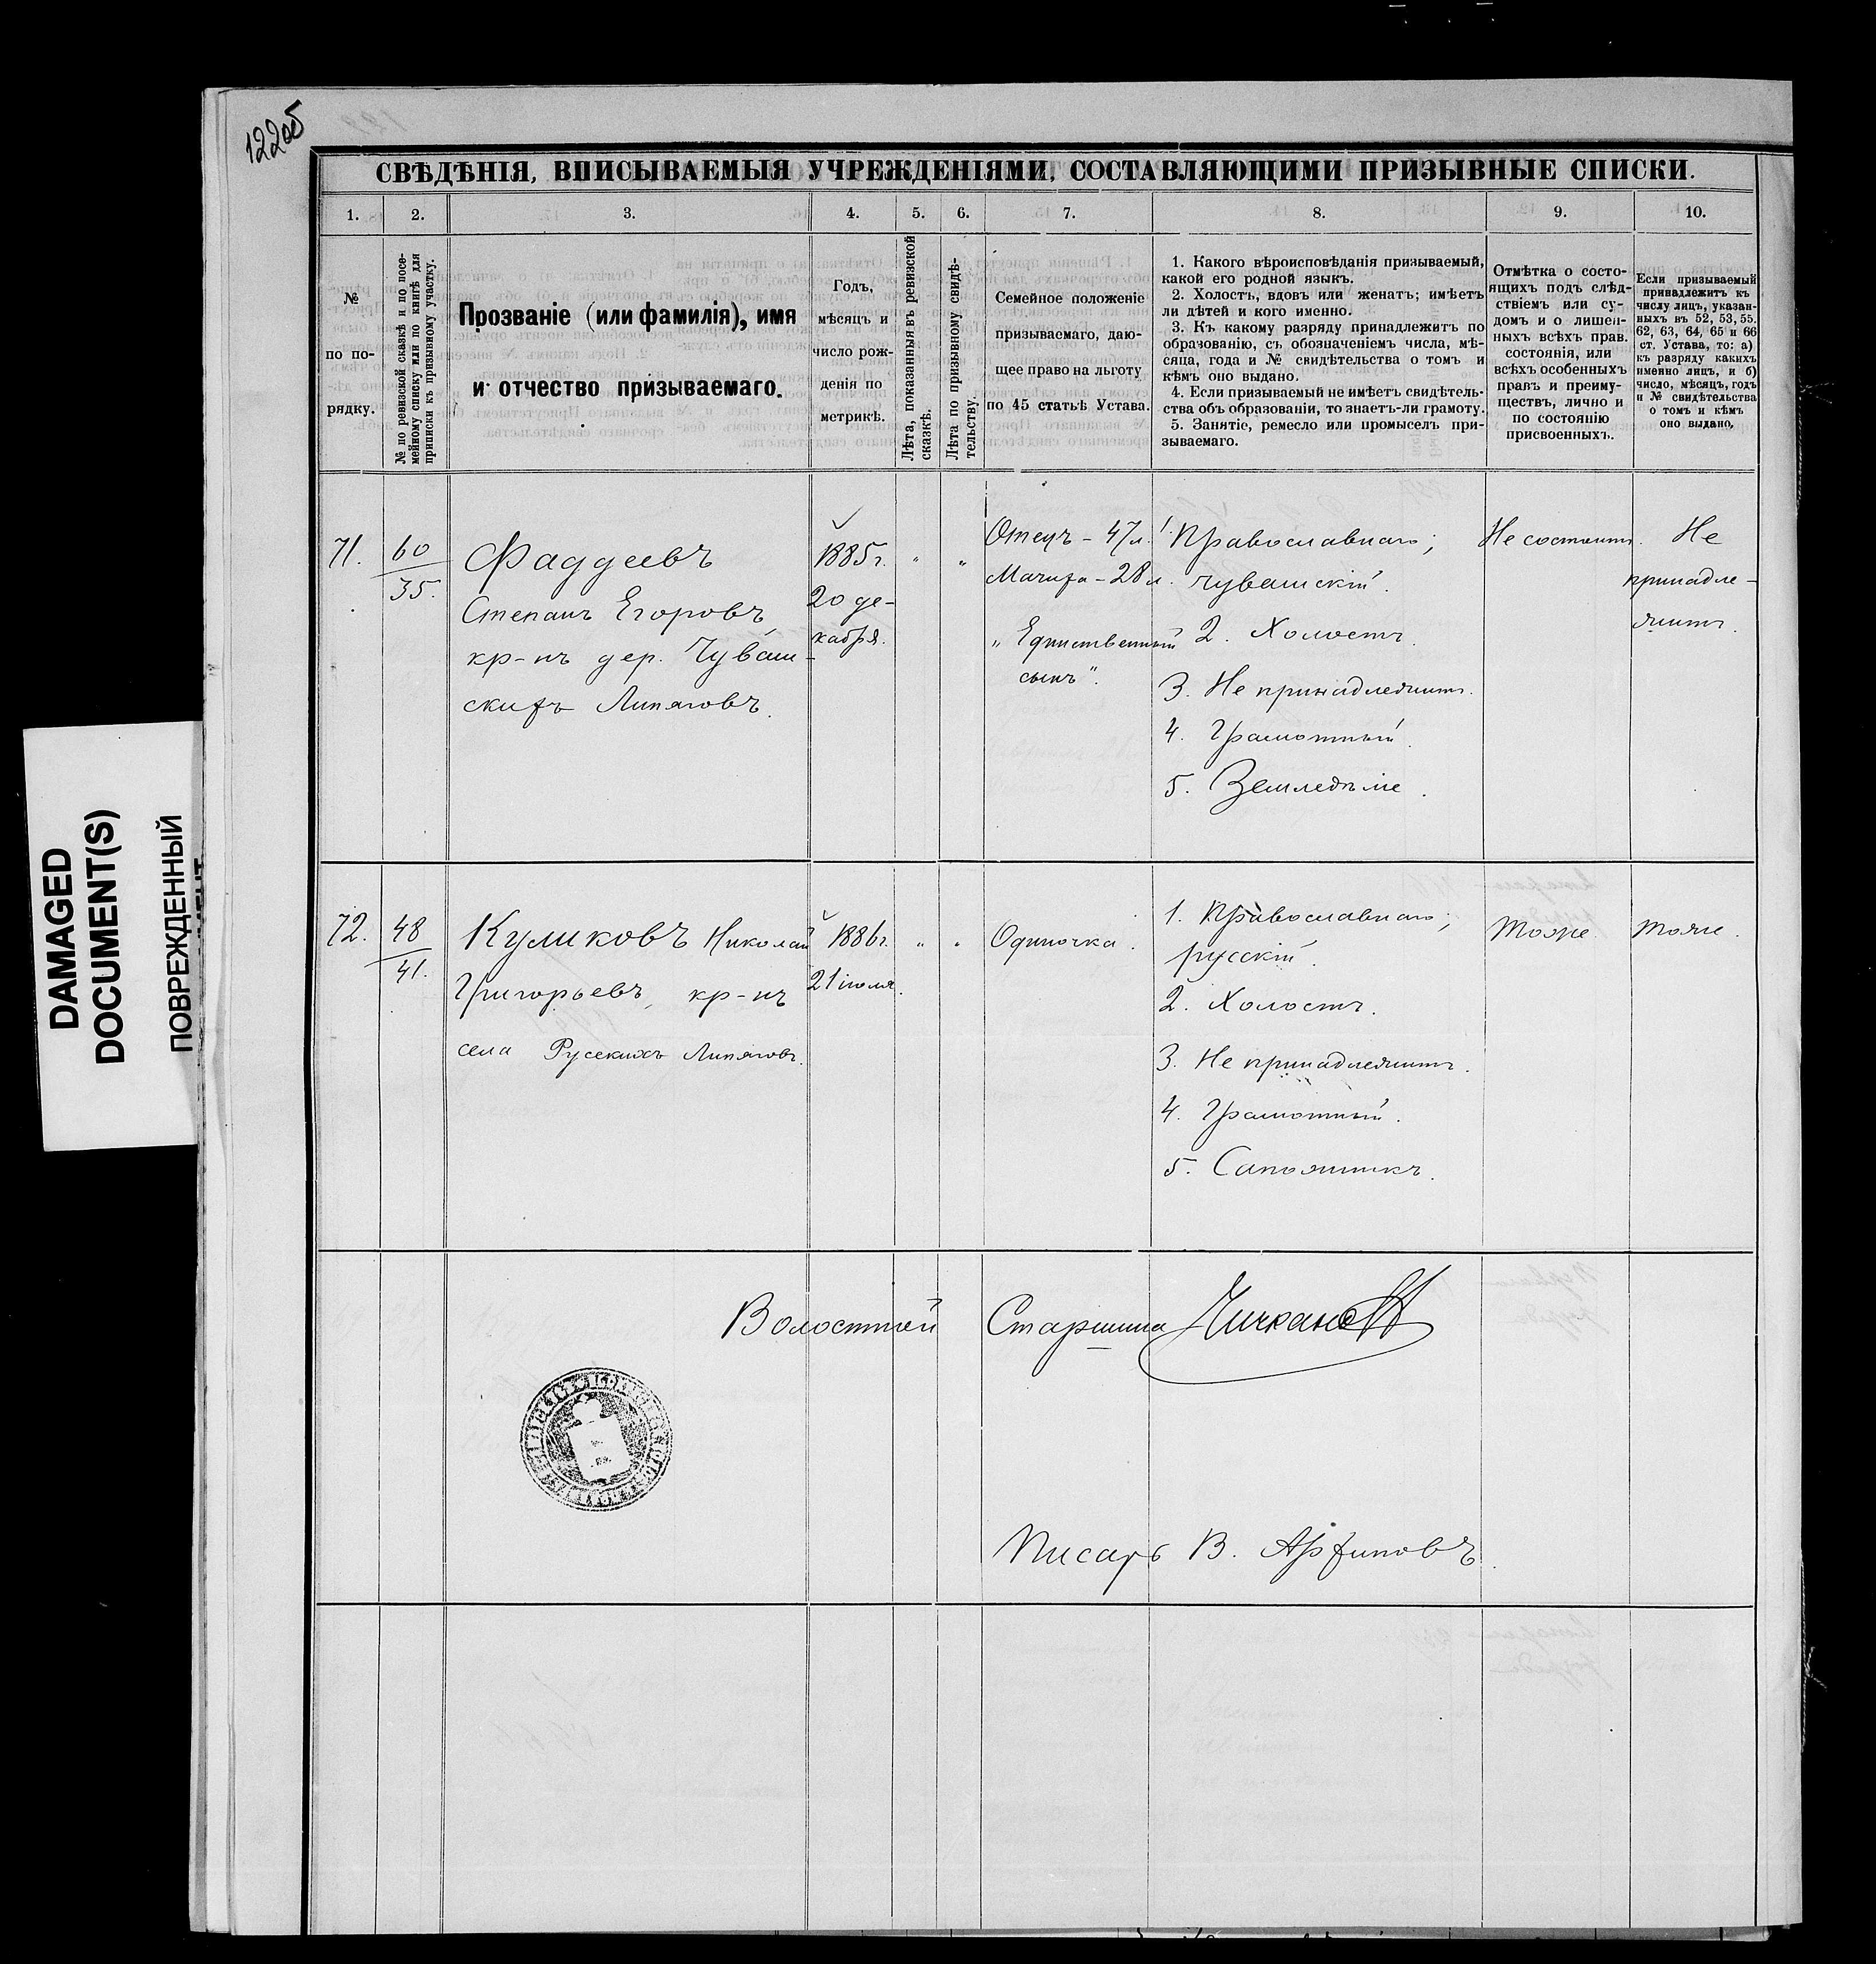 122об
СВѢДѢНІЯ, ВПИСЫВАЕМЫЯ УЧРЕЖДЕНІЯМИ, СОСТАВЛЯЮЩИМИ ПРИЗЫВНЫЕ СПИСКИ.
1. 2. 3. 4. 5. 6. 7. 8. 9. 10.
№
по по-
рядку.
№ по ревизской сказкѣ и по посе-
мейному списку или по книгѣ для
приписки къ призывному участку.
Прозваніе (или фамилія), имя
и отчество призываемаго.
Годъ,
мѣсяцъ и
число рож-
денія по
метрикѣ.
Лѣта, показанныя въ ревизской
сказкѣ.
Лѣта по призывному свидѣ-
тельству.
Семейное положеніе
призываемаго, даю-
щее право на льготу
по 45 статьѣ Устава.
1. Какого вѣроисповѣданія призываемый,
какой его родной языкъ.
2. Холостъ, вдовъ или женатъ; имѣетъ
ли дѣтей и кого именно.
3. Къ какому разряду принадлежитъ по
образованію, съ обозначеніемъ числа, мѣ-
сяца, года и № свидѣтельства о томъ и
кѣмъ оно выдано.
4. Если призываемый не имѣетъ свидѣтель-
ства объ образованіи, то знаетъ-ли грамоту.
5. Занятіе, ремесло или промыселъ при-
зываемаго.
Отмѣтка о состо-
ящихъ подъ слѣд-
ствіемъ или су-
домъ и о лишен-
ныхъ всѣхъ прав.
состоянія, или
всѣхъ особенныхъ
правъ и преиму-
ществъ, лично и
по состоянію
присвоенныхъ.
Если призываемый
принадлежитъ къ
числу лицъ, указан-
ныхъ въ 52, 53, 55,
62, 63, 64, 65 и 66
ст. Устава, то: а)
къ разряду какихъ
именно лицъ, и б)
число, мѣсяцъ, годъ
и № свидѣтельства
о томъ и кѣмъ
оно выдано.
71.
60
35.
Фаддеевъ
Степанъ Егоровъ,
кр-нъ дер. Чуваш-
скихъ Липяговъ.
1885г.
20 де-
кабря.
"
"
Отецъ - 47л.
Мачиха - 28л.
„Единственный
сынъ".
1. Православнаго;
чувашскій.
2. Холостъ.
3. Не принадлежитъ.
4. Грамотный.
5. Земледѣліе.
Не состоитъ.
Не
принадле-
житъ.
72.
48
41.
Куликовъ Николай
Григорьевъ, кр-нъ
села Русскихъ Липяговъ.
1886г.
21 іюля.
"
"
Одиночка.
1. Православнаго;
русскій.
2. Холостъ.
3. Не принадлежитъ.
4. Грамотный.
5. Сапожникъ.
Тоже.
Тоже.
Волостной Старшина Чичкановъ
Писарь В. Архиповъ.
DAMAGED
DOCUMENT(S)
ПОВРЕЖДЕННЫЙ